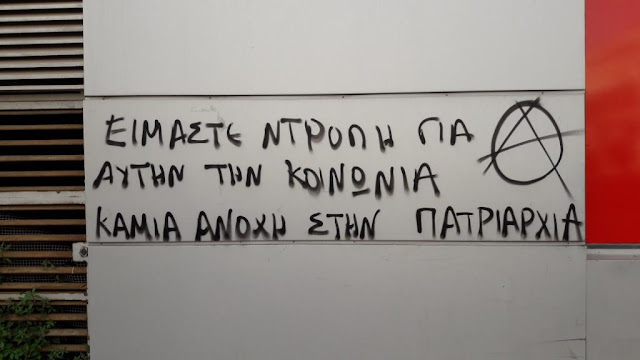 ΕΙΜΑΣΤΕ ΝΤΡΟΠΗ ΓΙΑ
ΑΥΤΗΝ ΤΗΝ ΚΟΙΝΩΝΙΑ
ΚΑΜΙΑ ΑΝΟΧΗ ΣΤΗΝ ΠΑΤΡΙΑΡΧΙΑ